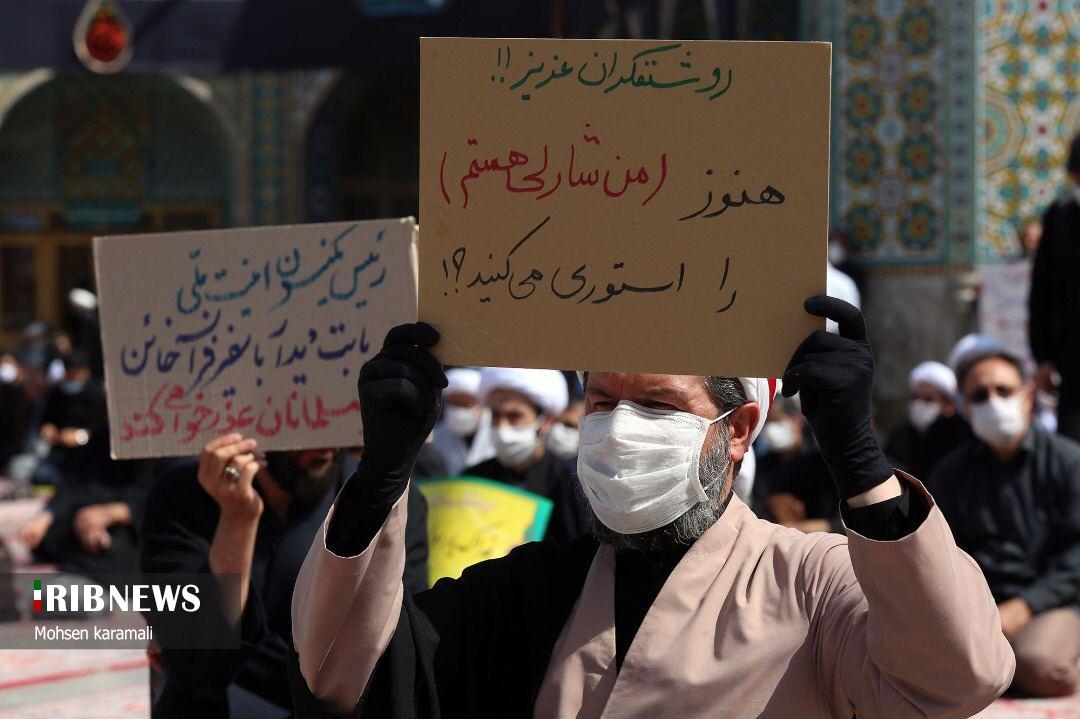 روشنفکران عزیز!!
هنوز (من شارلی هستم)
را استوری می‌کنید؟!
رئیس کمیسیون امنیت ملّی
بابت دیدار با سفیر فرانسه خائن
از مسلمانان عذرخواهی کند
IRIBNEWS
Mohsen karamali